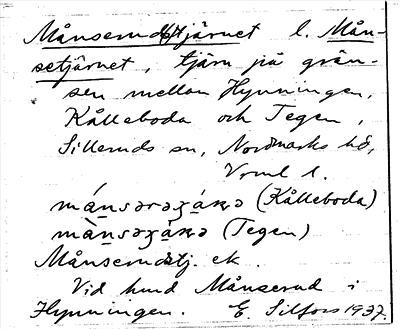 Månserudstjärnet l. Mån-
setjärnet, tjärn på grän-
sen mellan Hynningen,
Kålleboda och Tegen,
Silleruds sn, Nordmarks hd,
Vrml l.
mánsərəʒánə (Kålleboda)
mànsəʒánə (Tegen)
Månserudstj. ek.
Vid hmd Månserud i
Hynningen. E. Silfors 1937.